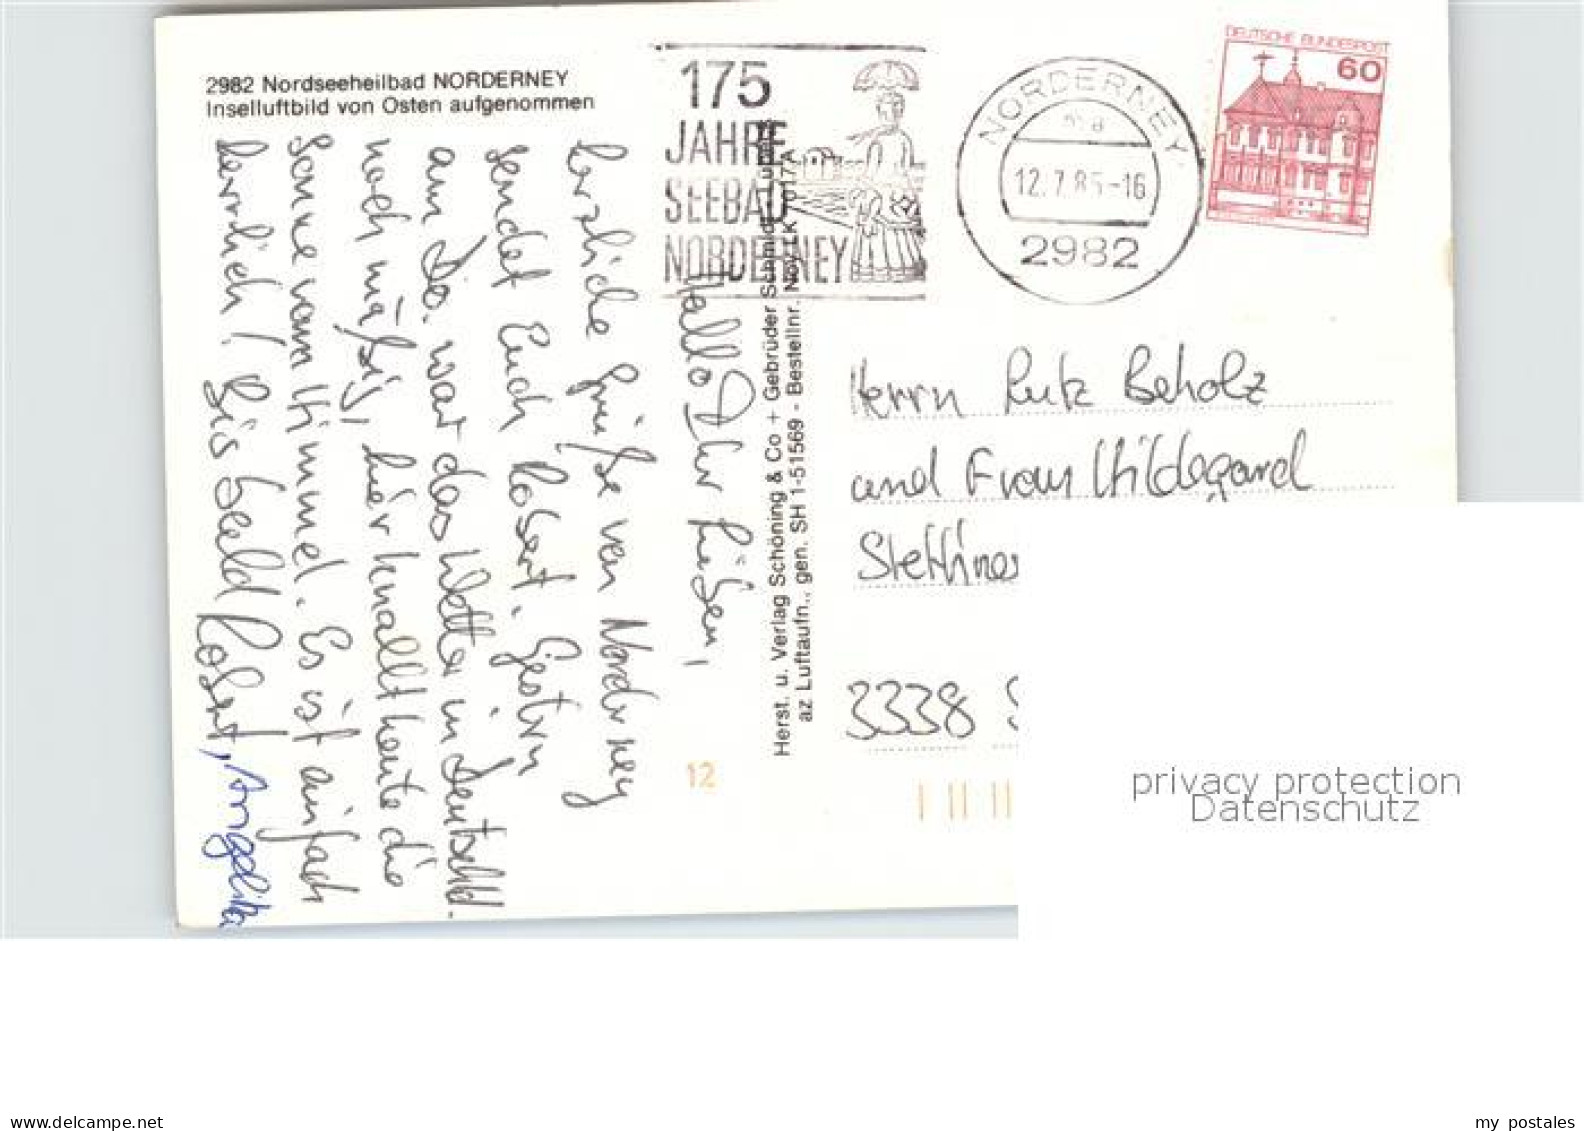 2982 Nordseeheilbad NORDERNEY
Inselluftbild von Osten aufgenommen
175
JAHRE
SEEBAD
NORDERNEY
NORDERNEY
12.7.85-16
2982
DEUTSCHE BUNDESPOST
60
Hallo Ihr Lieben,
herzliche Grüße von Norderney
sendet Euch Robert. Gestern
am Do. war das Wetter in Deutschld.
noch mäßig, hier knallt heute die
Sonne vom Himmel. Es ist einfach
herrlich! Bis bald Robert, Angelika
Herst. u. Verlag Schöning & Co + Gebrüder Schmidt, Lübeck
az Luftaufn., gen. SH 1-51569 - Bestellnr. Ney LK 1017 A
Herrn Lutz Beholz
und Frau Hildegard
Stettiner
3338 S
12
privacy protection
Datenschutz
www.delcampe.net
my postales